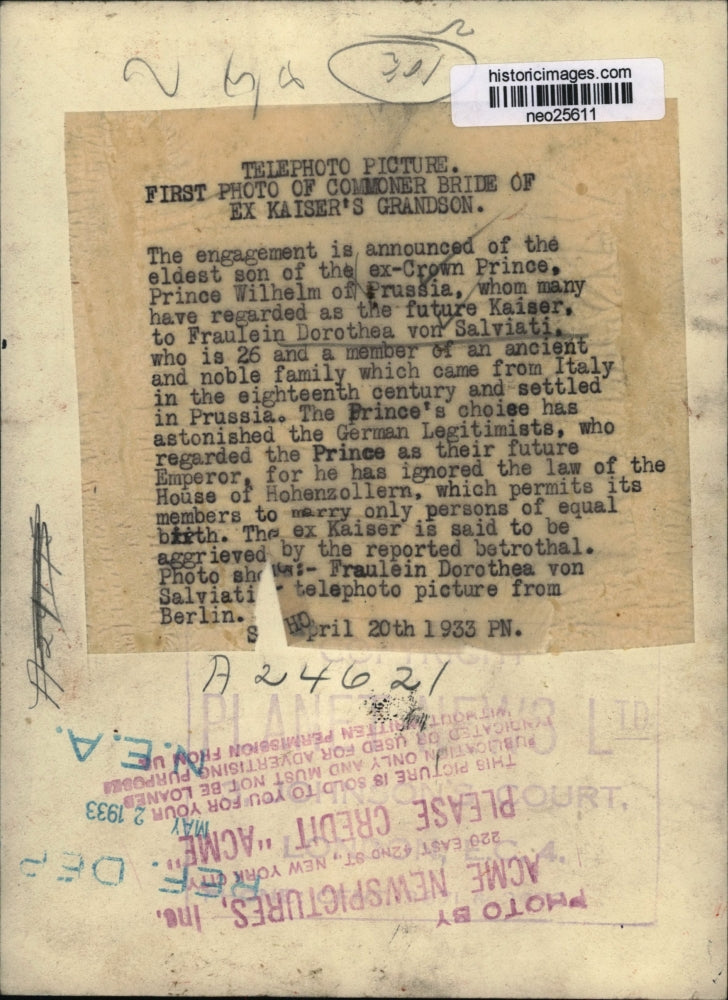 historicimages.com
neo25611
301
TELEPHOTO PICTURE.
FIRST PHOTO OF COMMONER BRIDE OF
EX KAISER'S GRANDSON.
The engagement is announced of the
eldest son of the ex-Crown Prince,
Prince Wilhelm of Prussia, whom many
have regarded as the future Kaiser,
to Fraulein Dorothea von Salviati,
who is 26 and a member of an ancient
and noble family which came from Italy
in the eighteenth century and settled
in Prussia. The Prince's choise has
astonished the German Legitimists, who
regarded the Prince as their future
Emperor, for he has ignored the law of the
House of Hohenzollern, which permits its
members to marry only persons of equal
birth. The ex Kaiser is said to be
aggrieved by the reported betrothal.
Photo shows:- Fraulein Dorothea von
Salviati - telephoto picture from
Berlin.
S HO pril 20th 1933 PN.
A24621
PLANET NEWS LTD
JOHNSON'S COURT,
LONDON, E.C.4.
PHOTO BY
ACME NEWSPICTURES, Inc.
220 EAST 42ND ST., NEW YORK CITY
PLEASE CREDIT "ACME"
THIS PICTURE IS SOLD TO YOU FOR YOUR
PUBLICATION ONLY AND MUST NOT BE LOANED
SYNDICATED OR USED FOR ADVERTISING PURPOSES
WITHOUT WRITTEN PERMISSION FROM US
N.E.A.
MAY 2 1933
REF. DEP